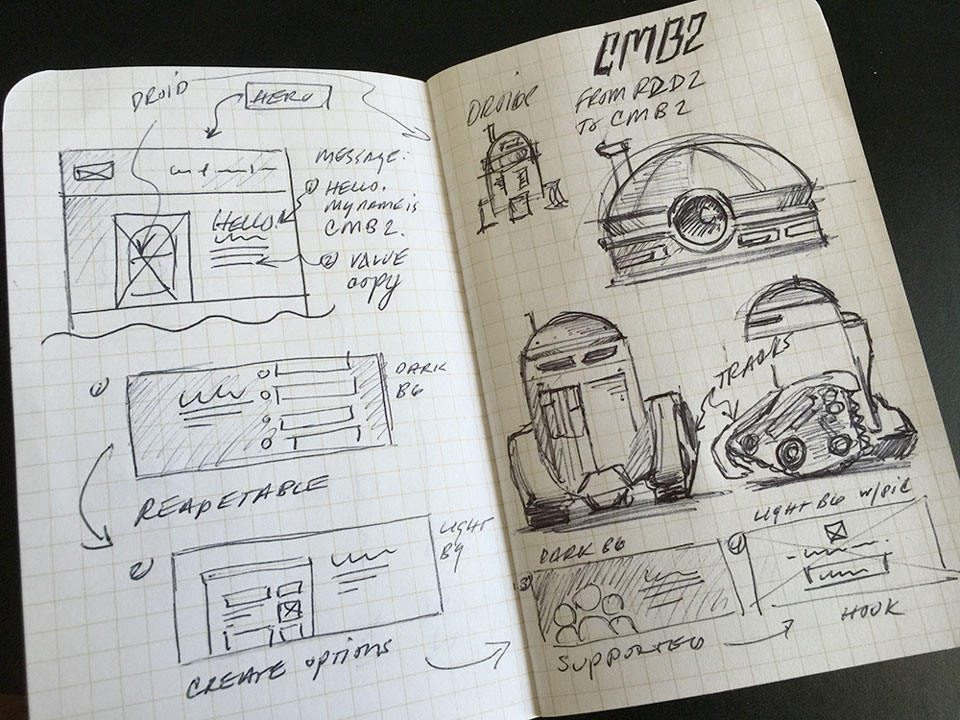 DROID
HERO
MESSAGE:
① HELLO.
MY NAME IS
CMB2.
② VALUE
COPY
HELLO.
①
DARK
BG
READETABLE
②
LIGHT
BG
CREATE OPTIONS
CMB2
FROM R2D2
TO CMB2
TRACKS
DARK BG
③
SUPPORTED
LIGHT BG W/PIC
④
HOOK